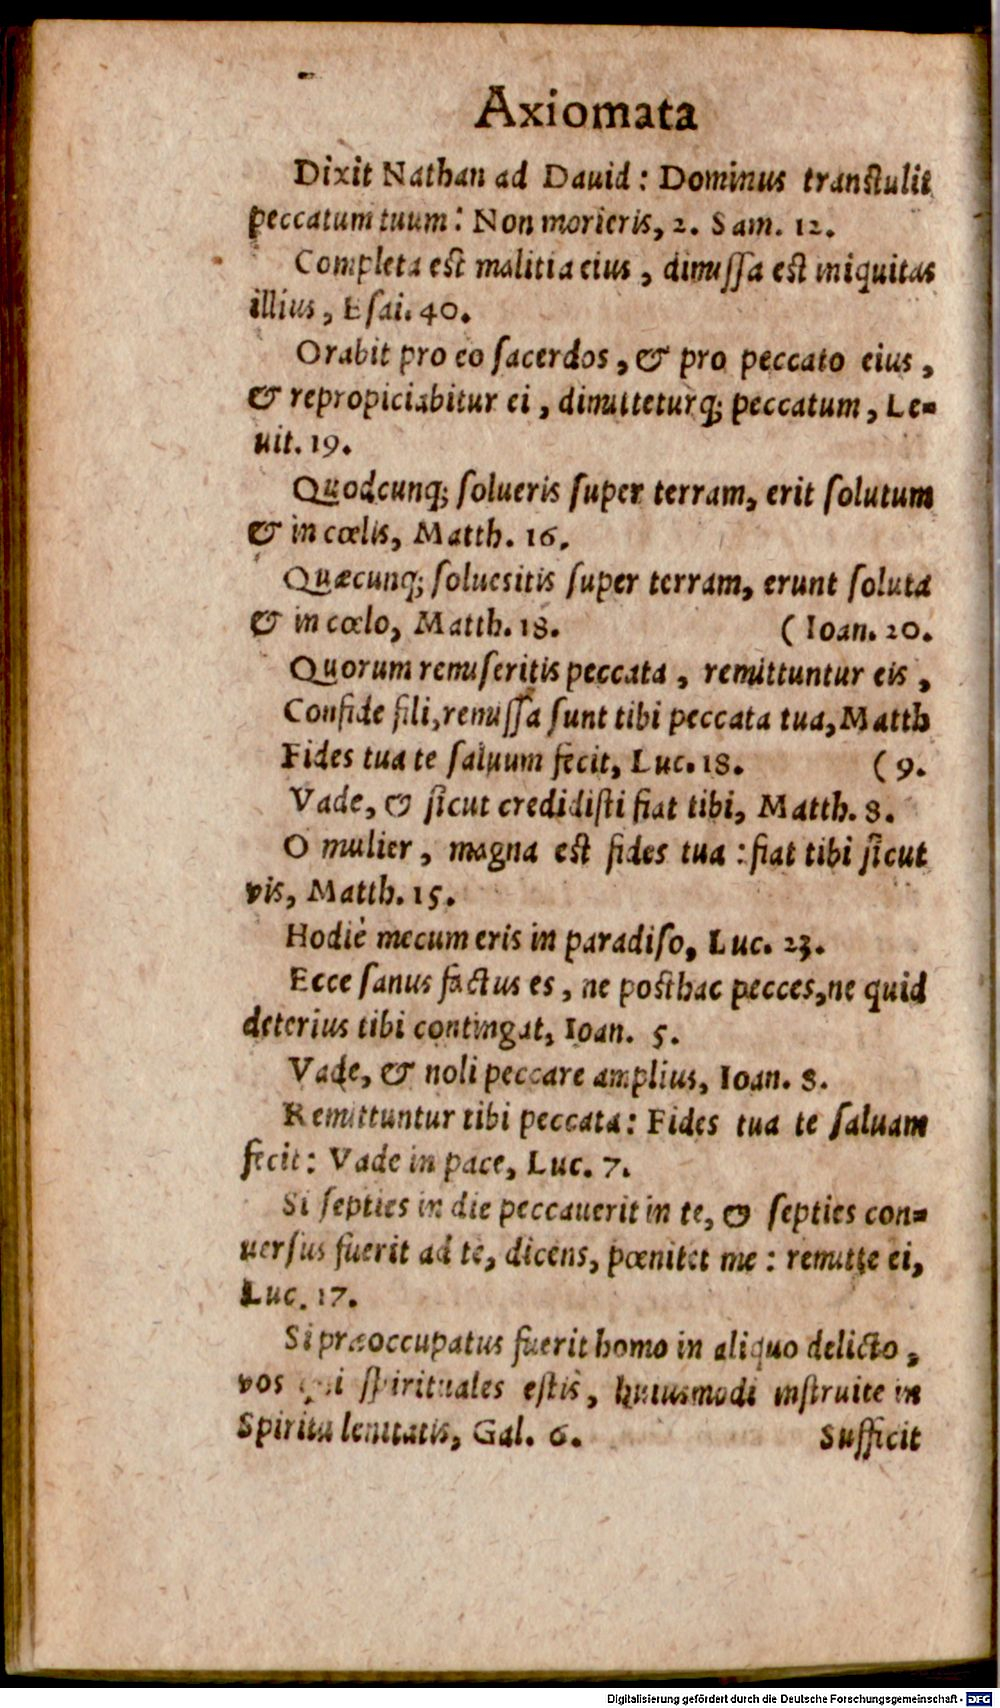 Axiomata
Dixit Nathan ad Dauid: Dominus transtulit
peccatum tuum: Non morieris, 2. Sam. 12.
Completa est malitia eius, dimissa est iniquitas
illius, Esai. 40.
Orabit pro eo sacerdos, & pro peccato eius,
& repropiciabitur ei, dimitteturq; peccatum, Le-
uit. 19.
Quodcunq; solueris super terram, erit solutum
& in cœlis, Matth. 16.
Quæcunq; soluesitis super terram, erunt soluta
& in cœlo, Matth. 18. (Ioan. 20.
Quorum remiseritis peccata, remittuntur eis,
Confide fili, remissa sunt tibi peccata tua, Matth
Fides tua te saluum fecit, Luc. 18. (9.
Vade, & sicut credidisti fiat tibi, Matth. 8.
O mulier, magna est fides tua: fiat tibi sicut
vis, Matth. 15.
Hodiè mecum eris in paradiso, Luc. 23.
Ecce sanus factus es, ne posthac pecces, ne quid
deterius tibi contingat, Ioan. 5.
Vade, & noli peccare amplius, Ioan. 8.
Remittuntur tibi peccata: Fides tua te saluam
fecit: Vade in pace, Luc. 7.
Si septies in die peccauerit in te, & septies con-
uersus fuerit ad te, dicens, pœnitet me: remitte ei,
Luc. 17.
Si præoccupatus fuerit homo in aliquo delicto,
vos qui spirituales estis, huiusmodi instruite in
Spiritu lenitatis, Gal. 6. Sufficit
Digitalisierung gefördert durch die Deutsche Forschungsgemeinschaft - DFG